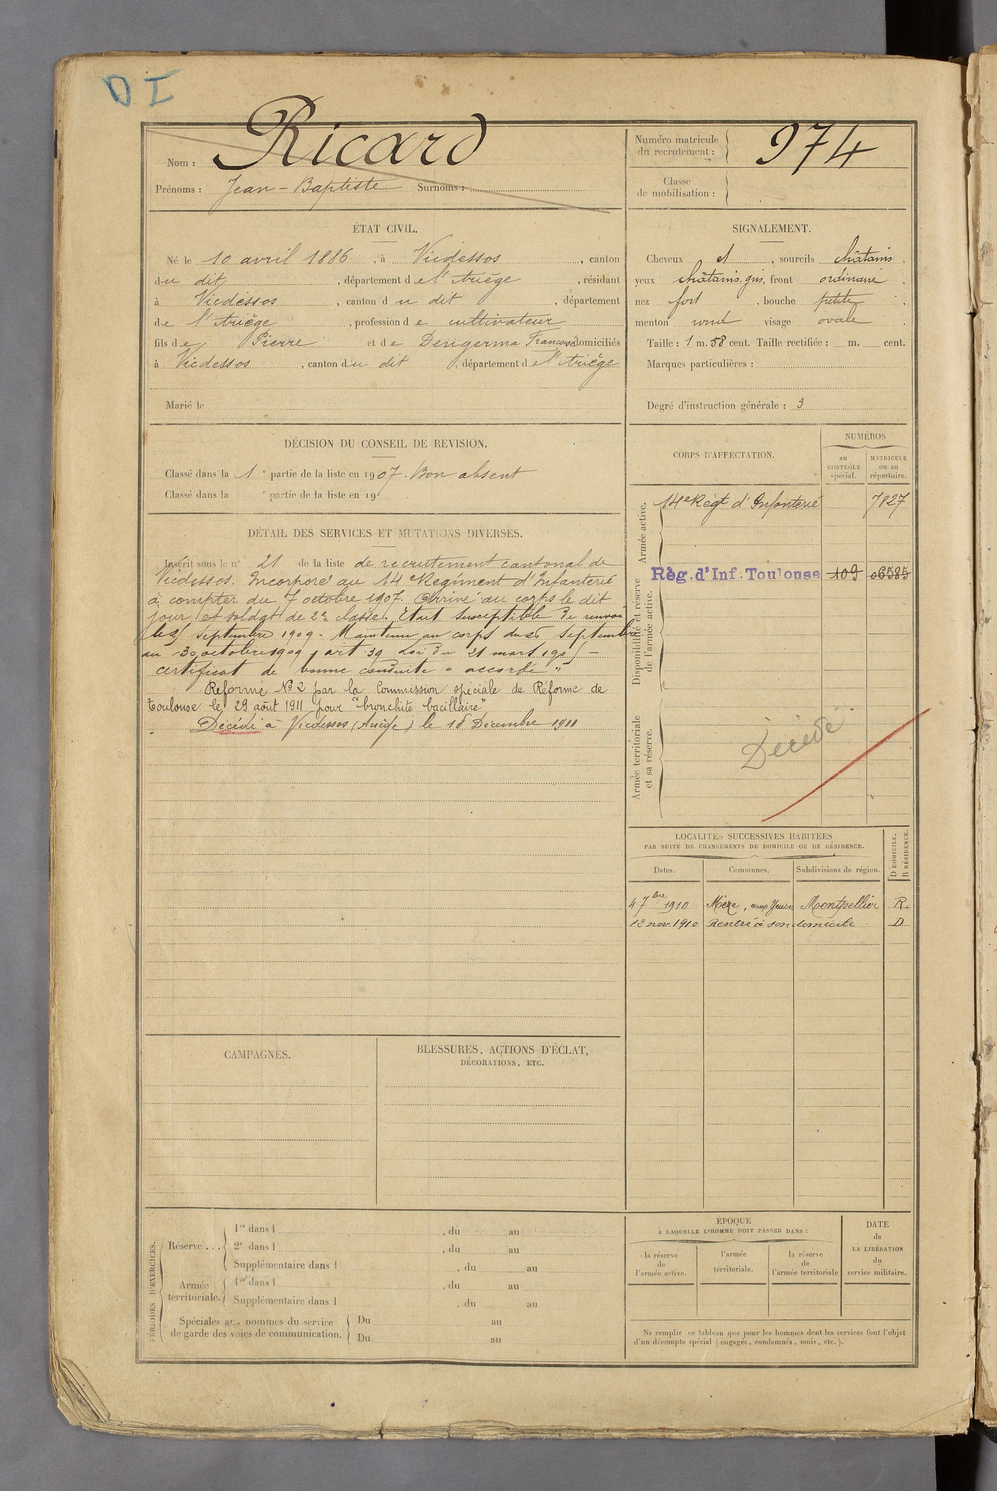 D I
Nom : Ricard
Prénoms : Jean-Baptiste Surnoms :
Numéro matricule
du recrutement : 974
Classe
de mobilisation :
ÉTAT CIVIL.
Né le 10 avril 1886, à Vicdessos, canton
du dit, département de l'Ariège, résidant
à Vicdessos, canton du dit, département
de l'Ariège, profession de cultivateur
fils de Pierre et de Dengerma Françoise domiciliés
à Vicdessos, canton du dit, département de l'Ariège
Marié le
SIGNALEMENT.
Cheveux et, sourcils châtains,
yeux châtains gris, front ordinaire,
nez fort, bouche petite,
menton rond visage ovale.
Taille : 1 m. 58 cent. Taille rectifiée : m. cent.
Marques particulières :
Degré d'instruction générale : 3
DÉCISION DU CONSEIL DE REVISION.
Classé dans la 1e partie de la liste en 1907. Bon absent
Classé dans la partie de la liste en 19
DÉTAIL DES SERVICES ET MUTATIONS DIVERSES.
Inscrit sous le n° 21 de la liste de recrutement cantonal de
Vicdessos. Incorporé au 14e Régiment d'Infanterie
à compter du 7 octobre 1907. Arrivé au corps le dit
jour et soldat de 2e classe. Était susceptible de renvoi
le septembre 1909. Maintenu au corps du 26 septembre
au 30 octobre 1909, art 39 Loi du 21 mars 1905 -
certificat de bonne conduite "accordé"
Réformé N° 2 par la Commission spéciale de Réforme de
Toulouse le 29 août 1911 pour "bronchite bacillaire"
Décédé à Vicdessos (Ariège) le 18 Décembre 1911
CORPS D'AFFECTATION.
NUMÉROS
au
CONTRÔLE
spécial.
MATRICULE
ou au
répertoire.
Armée active.
14e Régt d'Infanterie 7827
Disponibilité et réserve
de l'armée active.
Règ. d'Inf. Toulouse 109 06585
Armée territoriale
et sa réserve.
Décédé
LOCALITÉS SUCCESSIVES HABITÉES
PAR SUITE DE CHANGEMENTS DE DOMICILE OU DE RÉSIDENCE.
D DOMICILE.
R RÉSIDENCE.
Dates. Communes. Subdivisions de région.
4 7bre 1910 Mèze, Montpellier R.
12 nov. 1910 Rentré à son domicile D
CAMPAGNES.
BLESSURES, ACTIONS D'ÉCLAT,
DÉCORATIONS, ETC.
PÉRIODES D'EXERCICES.
Réserve ...
1re dans l , du au
2e dans l , du au
Supplémentaire dans l , du au
Armée
territoriale.
1re dans l , du au
Supplémentaire dans l , du au
Spéciales aux hommes du service
de garde des voies de communication.
Du au
Du au
ÉPOQUE
À LAQUELLE L'HOMME DOIT PASSER DANS :
la réserve
de
l'armée active.
l'armée
territoriale.
la réserve
de
l'armée territoriale
DATE
de
LA LIBÉRATION
du
service militaire.
Ne remplir ce tableau que pour les hommes dont les services font l'objet
d'un décompte spécial (engagés, condamnés, omis, etc.).